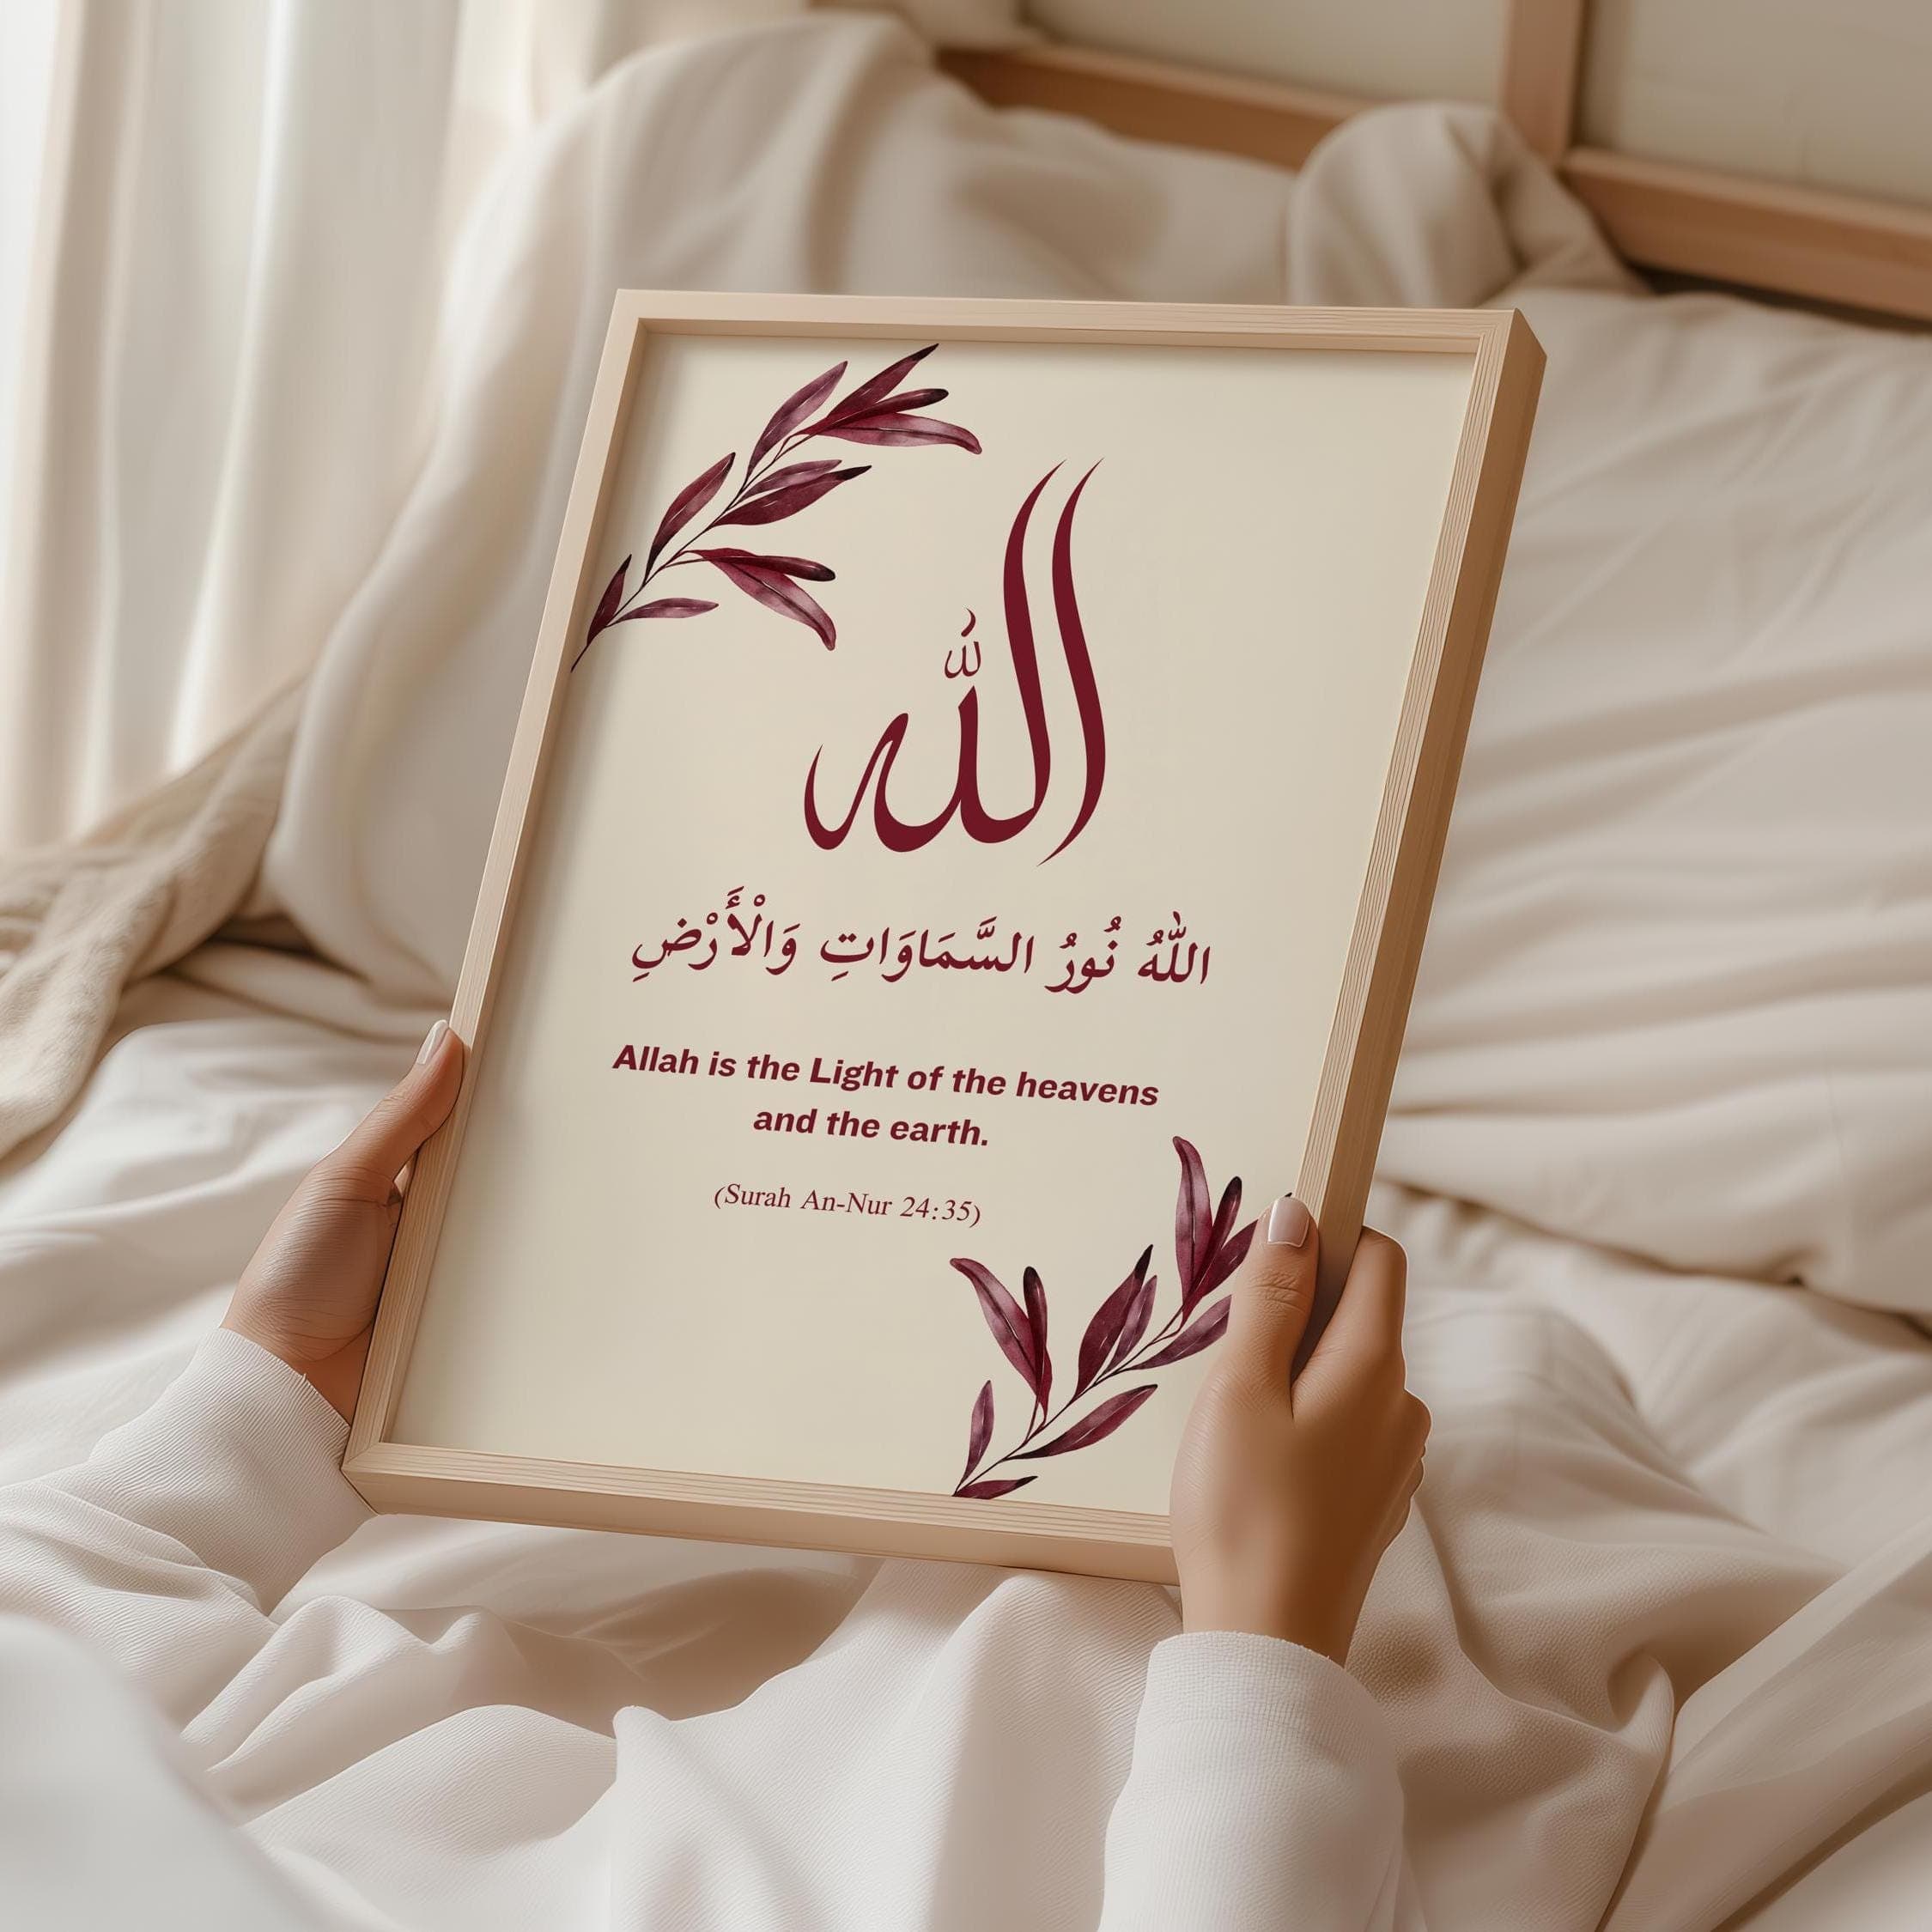 الله
اللهُ نُورُ السَّمَاوَاتِ وَالْأَرْضِ
Allah is the Light of the heavens
and the earth.
(Surah An-Nur 24:35)